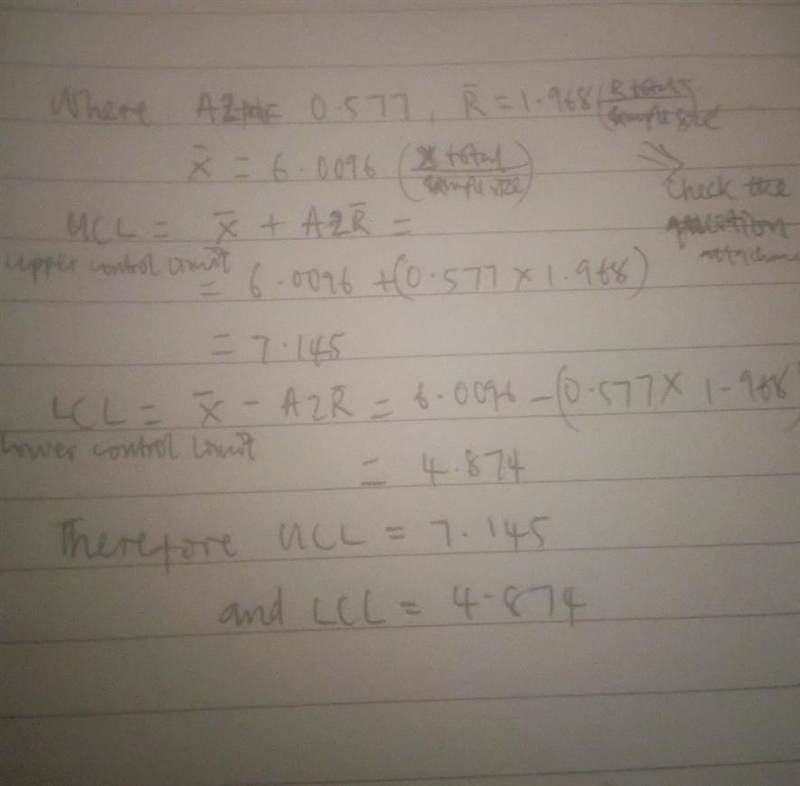 Where A2 = 0.577, R̄ = 1.968 (R total / sample size)
X̄ = 6.0096 (X total / sample size) ⇒ Check the question
UCL = X̄ + A2R̄ =
upper control limit
= 6.0096 + (0.577 × 1.968)
= 7.145
LCL = X̄ - A2R̄ = 6.0096 - (0.577 × 1.968
lower control limit
= 4.874
Therefore UCL = 7.145
and LCL = 4.874